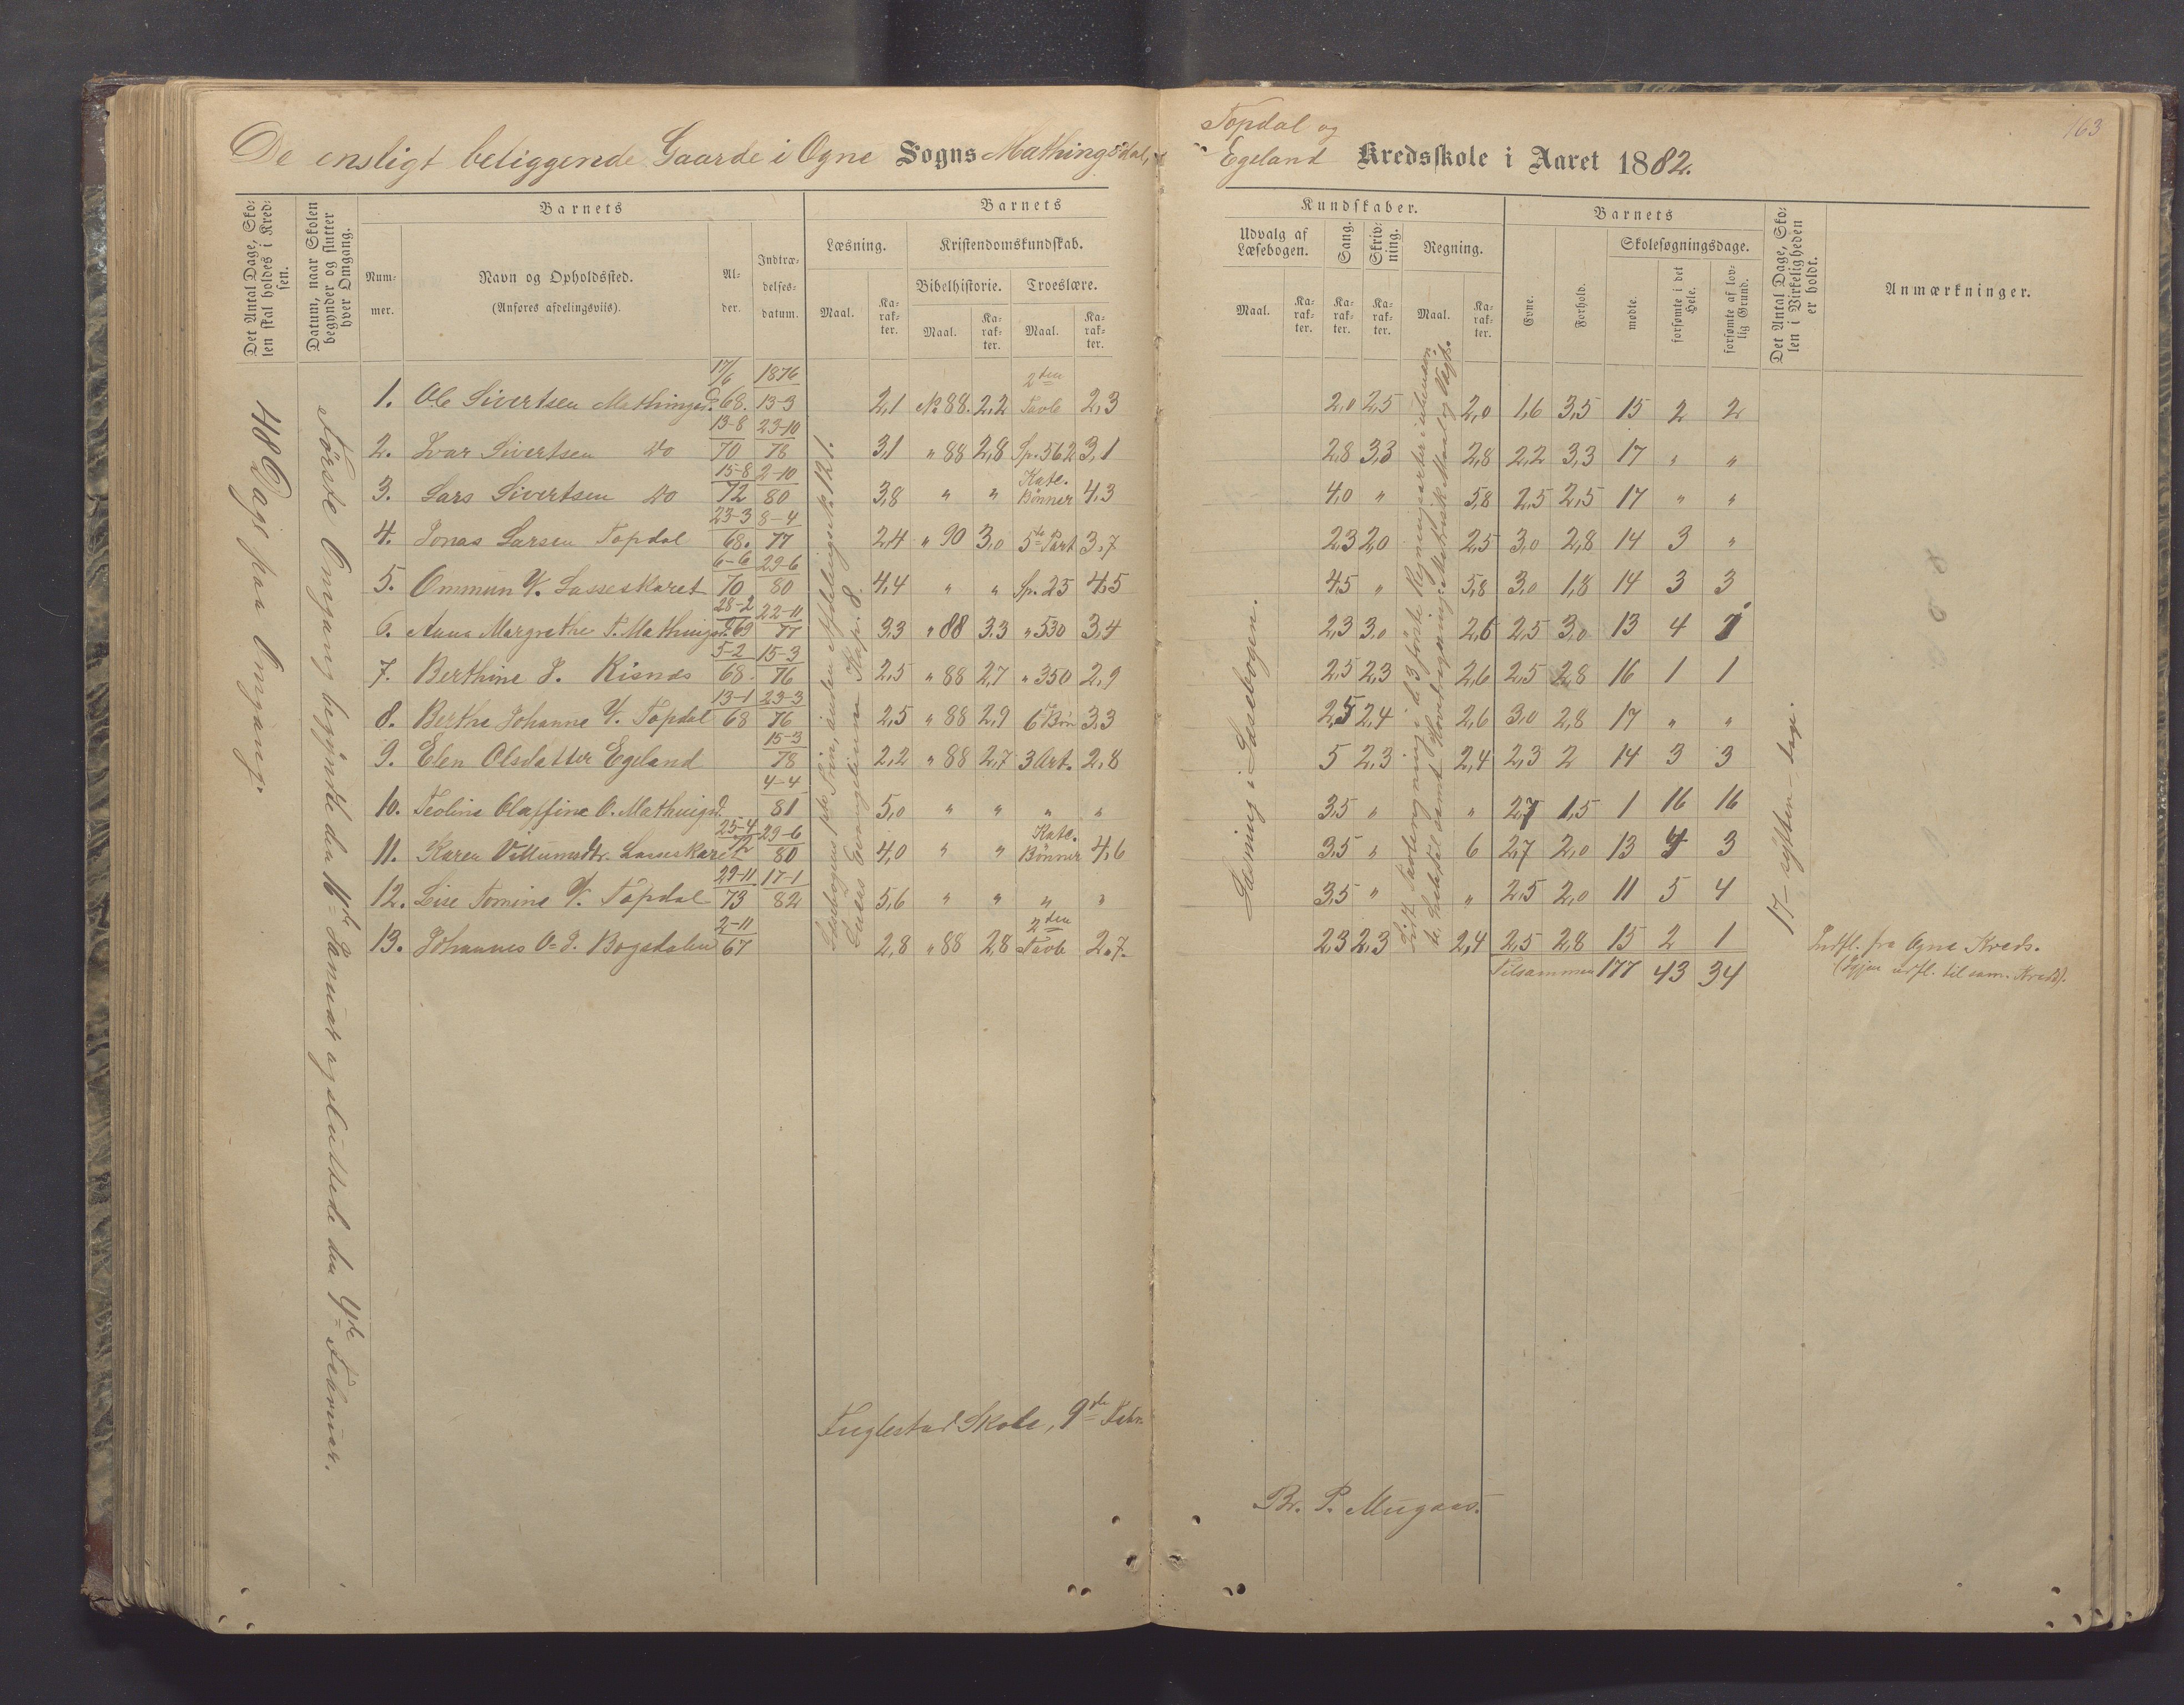 De ensligt beliggende Gaarde i Ogne Sogns Mathingsdal,
Topdal og
Egeland Kredsskole i Aaret 1882.
163
Det Antal Dage, Sko-
len skal holdes i Kred-
sen.
Datum, naar Skolen
begynder og slutter
hver Omgang.
Barnets
Num-
mer.
Navn og Opholdssted.
(Anføres afdelingsviis).
Al-
der.
Indtræ-
delses-
datum.
Barnets
Læsning.
Maal.
Ka-
rak-
ter.
Kristendomskundskab.
Bibelhistorie.
Maal.
Ka-
rak-
ter.
Troeslære.
Maal.
Ka-
rak-
ter.
Kundskaber.
Udvalg af
Læsebogen.
Maal.
Ka-
rak-
ter.
Sang.
Ka-
rak-
ter.
Skriv-
ning.
Ka-
rak-
ter.
Regning.
Maal.
Ka-
rak-
ter.
Barnets
Evne.
Forhold.
Skolesøgningsdage.
mødte.
forsømte i det
Hele.
forsømte af lov-
lig Grund.
Det Antal Dage, Sko-
len i Virkeligheden
er holdt.
Anmærkninger.
48 Dage paa Omgang.
Første Omgang begyndte den 16de Januar og sluttede den 4de Februar.
Læsning i Læsebogen.
17 - sytten - dage.
1. Ole Sivertsen Mathingsd. 17/6 68. 1876 13-3 2,1 No 88. 2,2 2den Tavle 2,3 2,0 2,5 2,0 1,6 3,5 15 2 2
2. Ivar Sivertsen do 13-8 70 23-10 78 3,1 " 88 2,8 Sp. 562 3,1 2,8 3,3 2,8 2,2 3,3 17 " "
3. Lars Sivertsen do 15-8 72 2-10 80 3,8 " " Kate. Bønner 4,3 4,0 " 5,8 2,5 2,5 17 " "
4. Jonas Larsen Topdal 23-3 68. 8-4 77 2,4 " 90 3,0 5te Part 3,7 2,3 2,0 2,5 3,0 2,8 14 3 "
5. Ommun V. Lasseskaret 6-6 70 29-6 80 4,4 " " Sp. 25 4,5 4,5 " 5,8 3,0 1,8 14 3 3
6. Anna Margrethe T. Mathingsd. 28-2 69 22-11 77 3,3 " 88 3,3 " 530 3,4 2,3 3,0 2,6 2,5 3,0 13 4 1
7. Berthine J. Risnes 5-2 68. 15-3 76 2,5 " 88 2,7 " 350 2,9 2,5 2,3 2,6 2,5 2,8 16 1 1
8. Berthe Johanne V. Topdal 13-1 68 23-3 76 2,5 " 88 2,9 6te Bøn 3,3 2,5 2,4 2,6 3,0 2,8 17 " "
9. Elen Olsdatter Egeland 15-3 78 2,2 " 88 2,7 3 Art. 2,8 5 2,3 2,4 2,3 2 14 3 3
10. Teoline Olaffine O. Mathingsd. 4-4 81 5,0 " " " " 3,5 " " 2,7 1,5 1 16 16
11. Karen Villumsdtr. Lasseskaret 25-4 72 29-6 80 4,0 " " Kate. Bønner 4,6 3,5 " 6 2,7 2,0 13 4 3
12. Lise Tomine V. Topdal 29-11 73 17-1 82 5,6 " " " " 3,5 " " 2,5 2,0 11 5 4
13. Johannes O- J. Bogsdalen 2-11 67 2,8 " 88 2,8 2den Tavle 2,7 2,3 2,3 2,4 2,5 2,8 15 2 1 Indfl. fra Ogne Kreds.
Tilsammen 177 43 34 (Igjen udfl. til sam. Kreds).
Fuglestad Skole, 9de Febr.
Br. P. Mugaas.